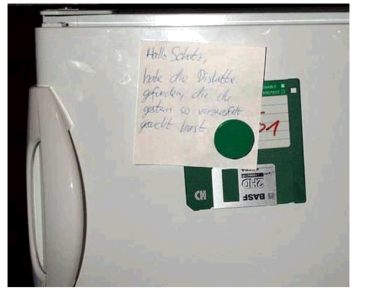 Hallo Schatz,
habe die Diskette
gefunden, die du
gestern so verzweifelt
gesucht hast.
51
BASF
2HD
HD